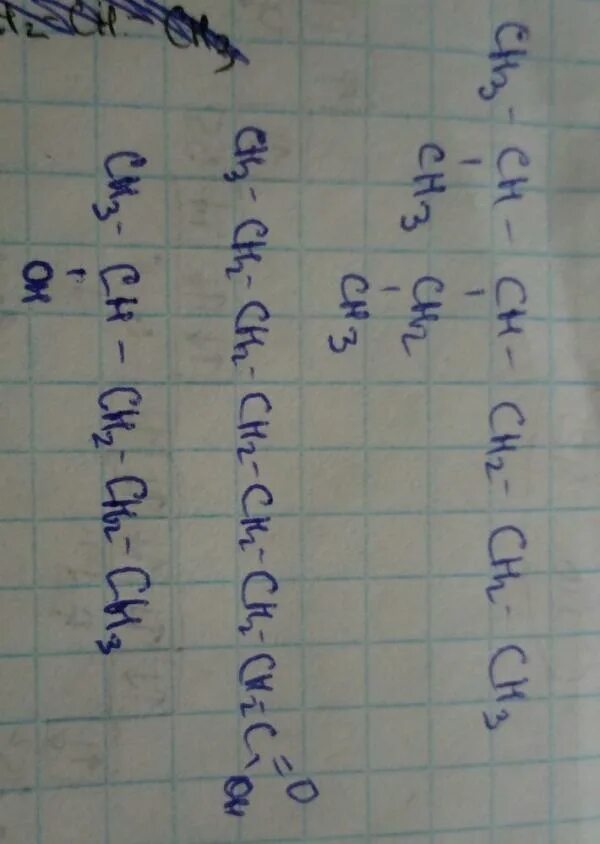 CH3-CH-CH-CH2-CH2-CH3
CH3 CH2
CH3
=O
CH3-CH2-CH2-CH2-CH2-CH2-CH2-C
-OH
CH3-CH-CH2-CH2-CH3
OH